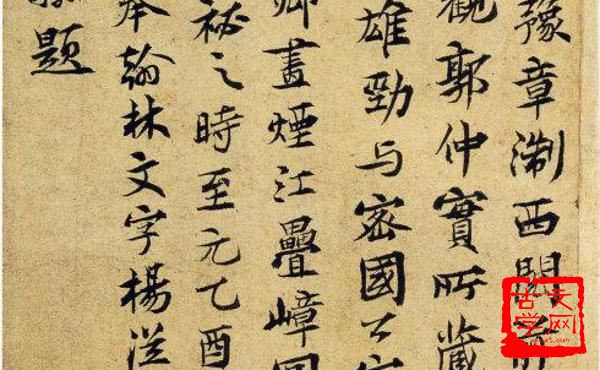 豫章淛西閱
觀郭仲實所藏
雄勁与密國公
卿畫煙江疊嶂圖
祕之時至元乙酉
奉翰林文字楊
題
古文学网